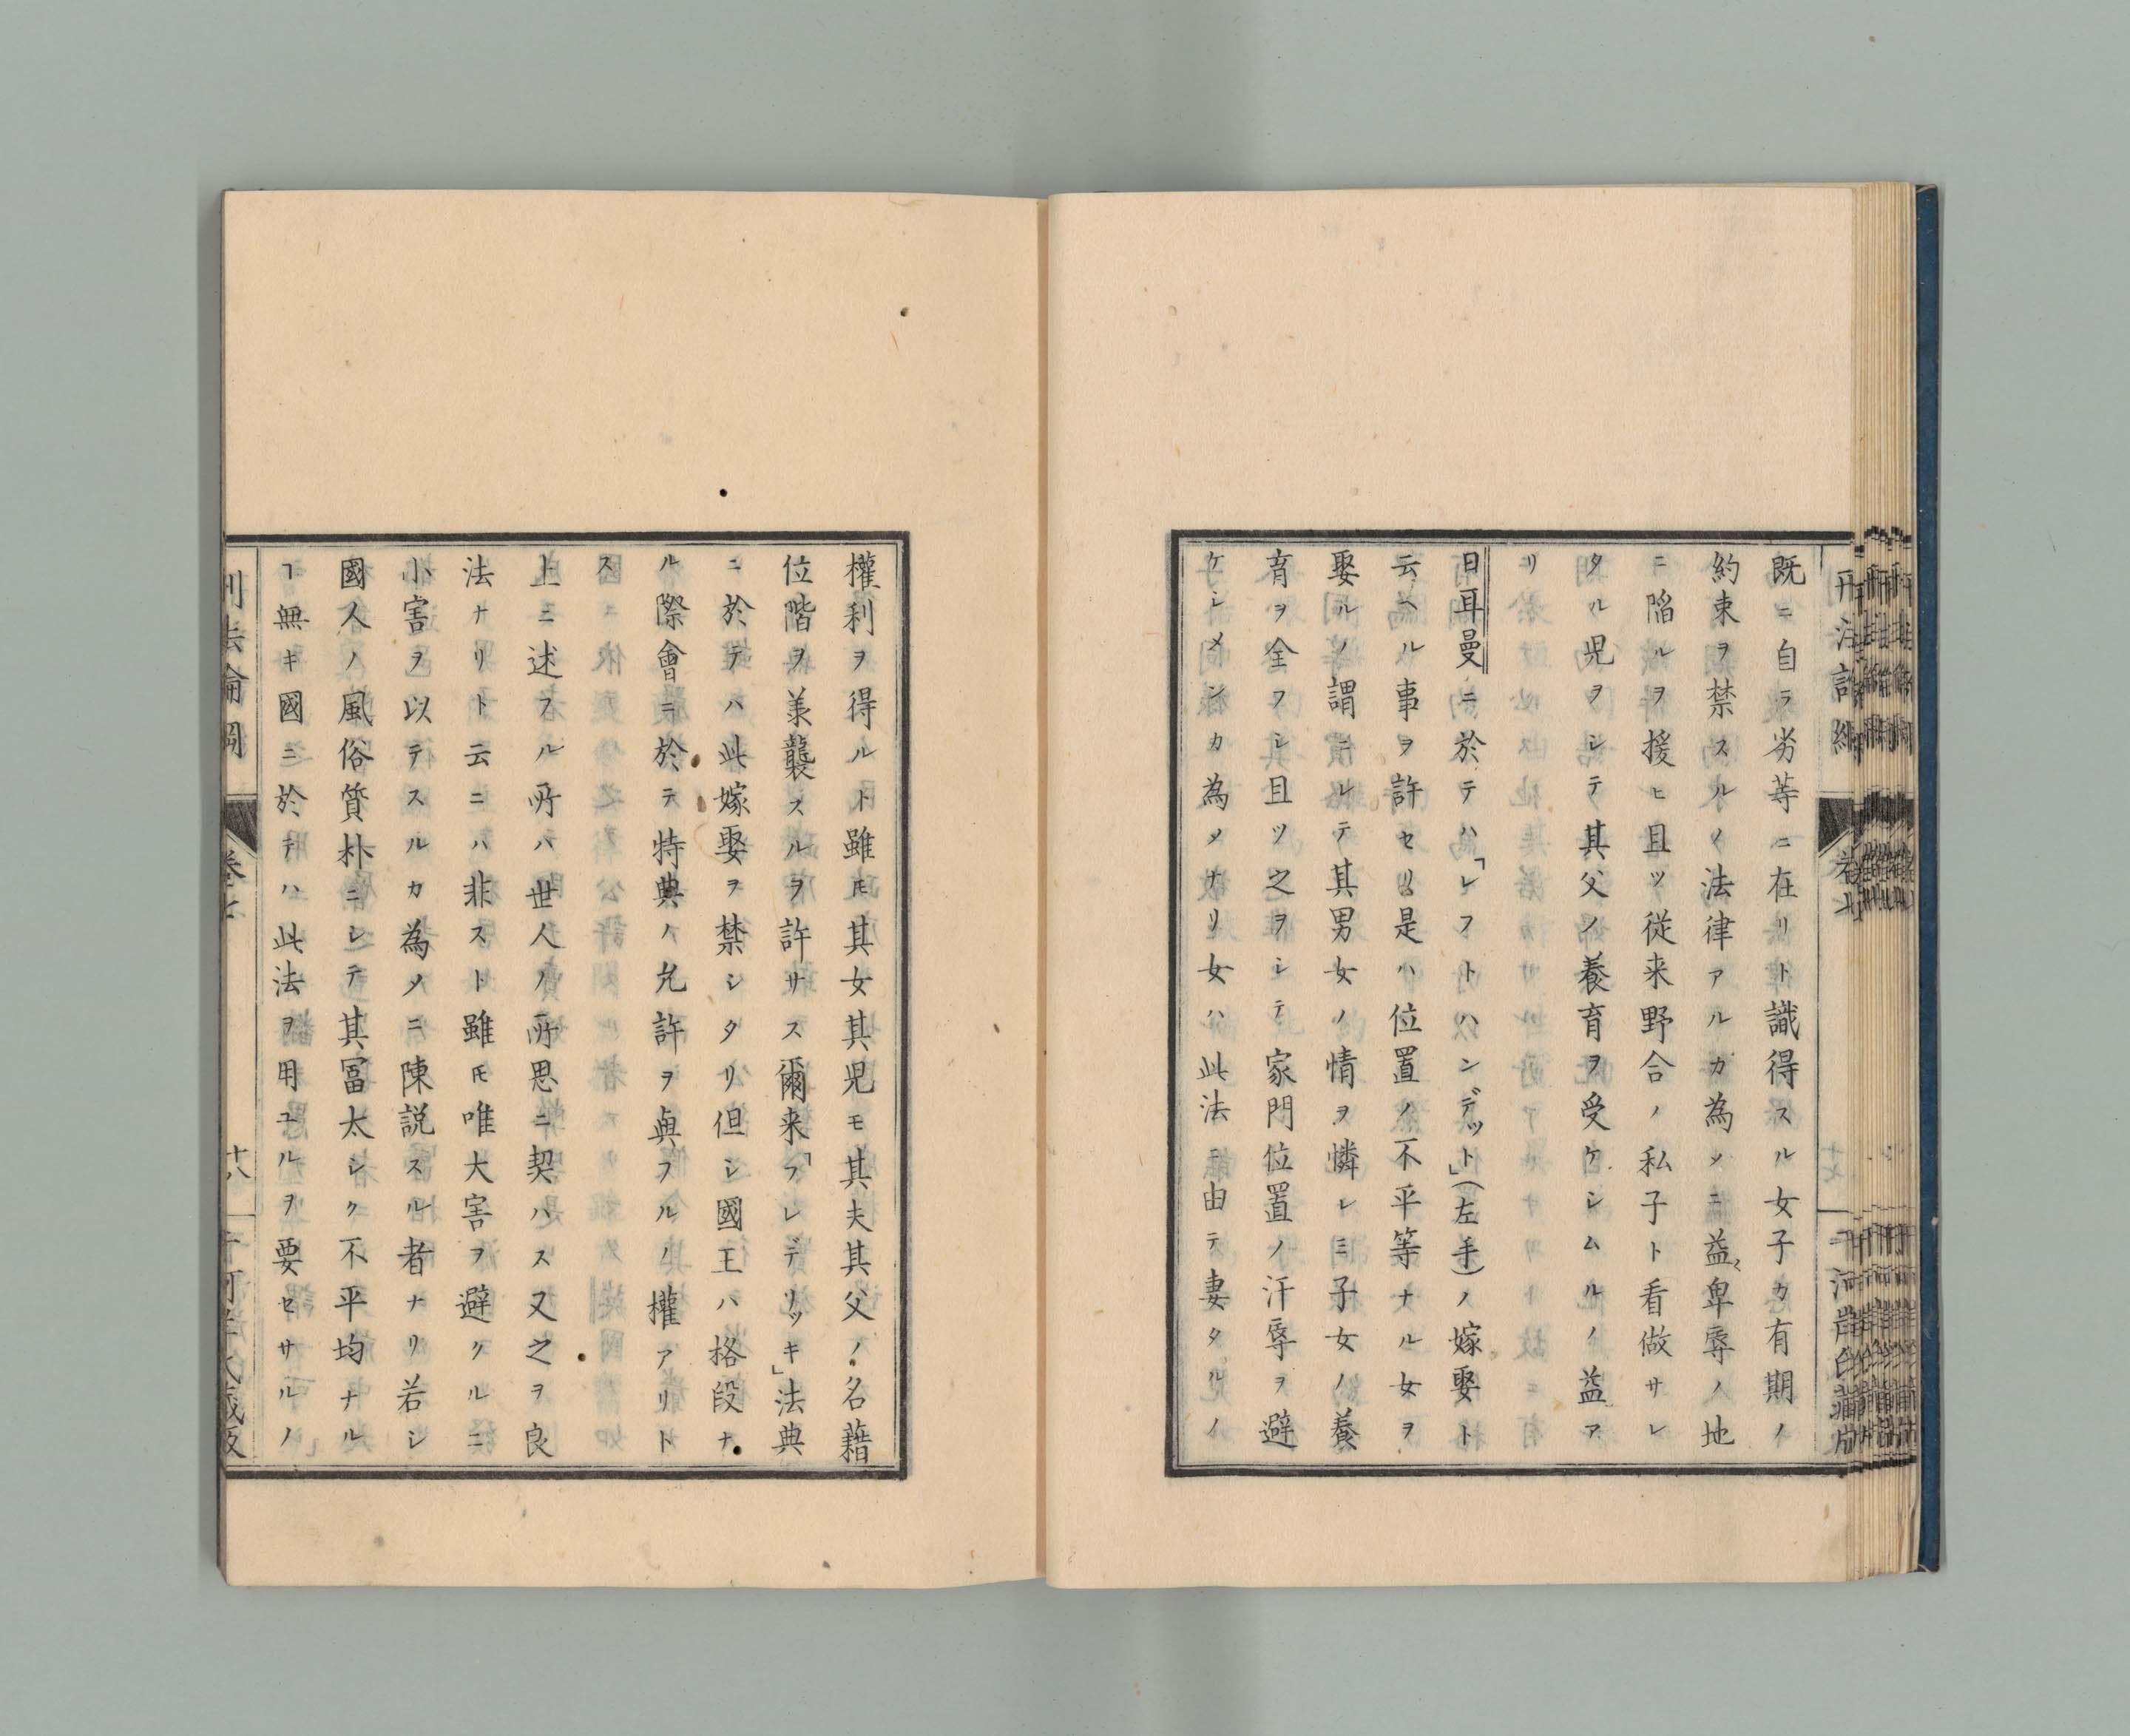 既ニ自ラ劣等ニ在リト識得スル女子カ有期ノ
約束ヲ禁スルノ法律アルカ為メニ益〻卑辱ノ地
ニ陷ルヲ援ヒ且ツ従来野合ノ私子ト看做サレ
タル児ヲシテ其父ノ養育ヲ受ケシムルノ益ア
リ
日耳曼ニ於テハ「レフトハンデット」(左手)ノ嫁娶ト
云ヘル事ヲ許セリ是ハ位置ノ不平等ナル女ヲ
娶ルノ謂ニシテ其男女ノ情ヲ憐レミ子女ノ養
育ヲ全フシ且ツ之ヲシテ家門位置ノ汗辱ヲ避
ケシメンカ為メナリ女ハ此法ニ由テ妻タルノ
權利ヲ得ルト雖𪜈其女其児モ其夫其父ノ名藉
位階ヲ羕襲スルヲ許サス爾来「フレデリッキ」法典
ニ於テハ此嫁娶ヲ禁シタリ但シ國王ハ格段ナ
ル際會ニ於テ特典ノ允許ヲ與フルノ權アリト
ス
上ニ述フル所ハ世人ノ所思ニ契ハス又之ヲ良
法ナリト云ニハ非スト雖𪜈唯大害ヲ避クルニ
小害ヲ以テスルカ為メニ陳説スル者ナリ若シ
國人ノ風俗質朴ニシテ其冨太シク不平均ナル
ヿ無キ國ニ於テハ此法ヲ用ユルヲ要セサルノ
卷七
十八